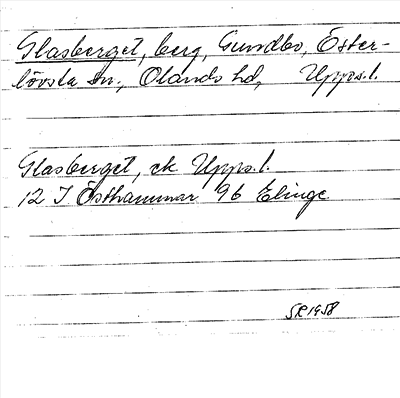 Glasberget, berg, Gundbo, Öster-
lövsta sn., Olands hd, Upps.l.
Glasberget, ek Upps.l.
12 I Östhammar 96 Elinge
SR 1958